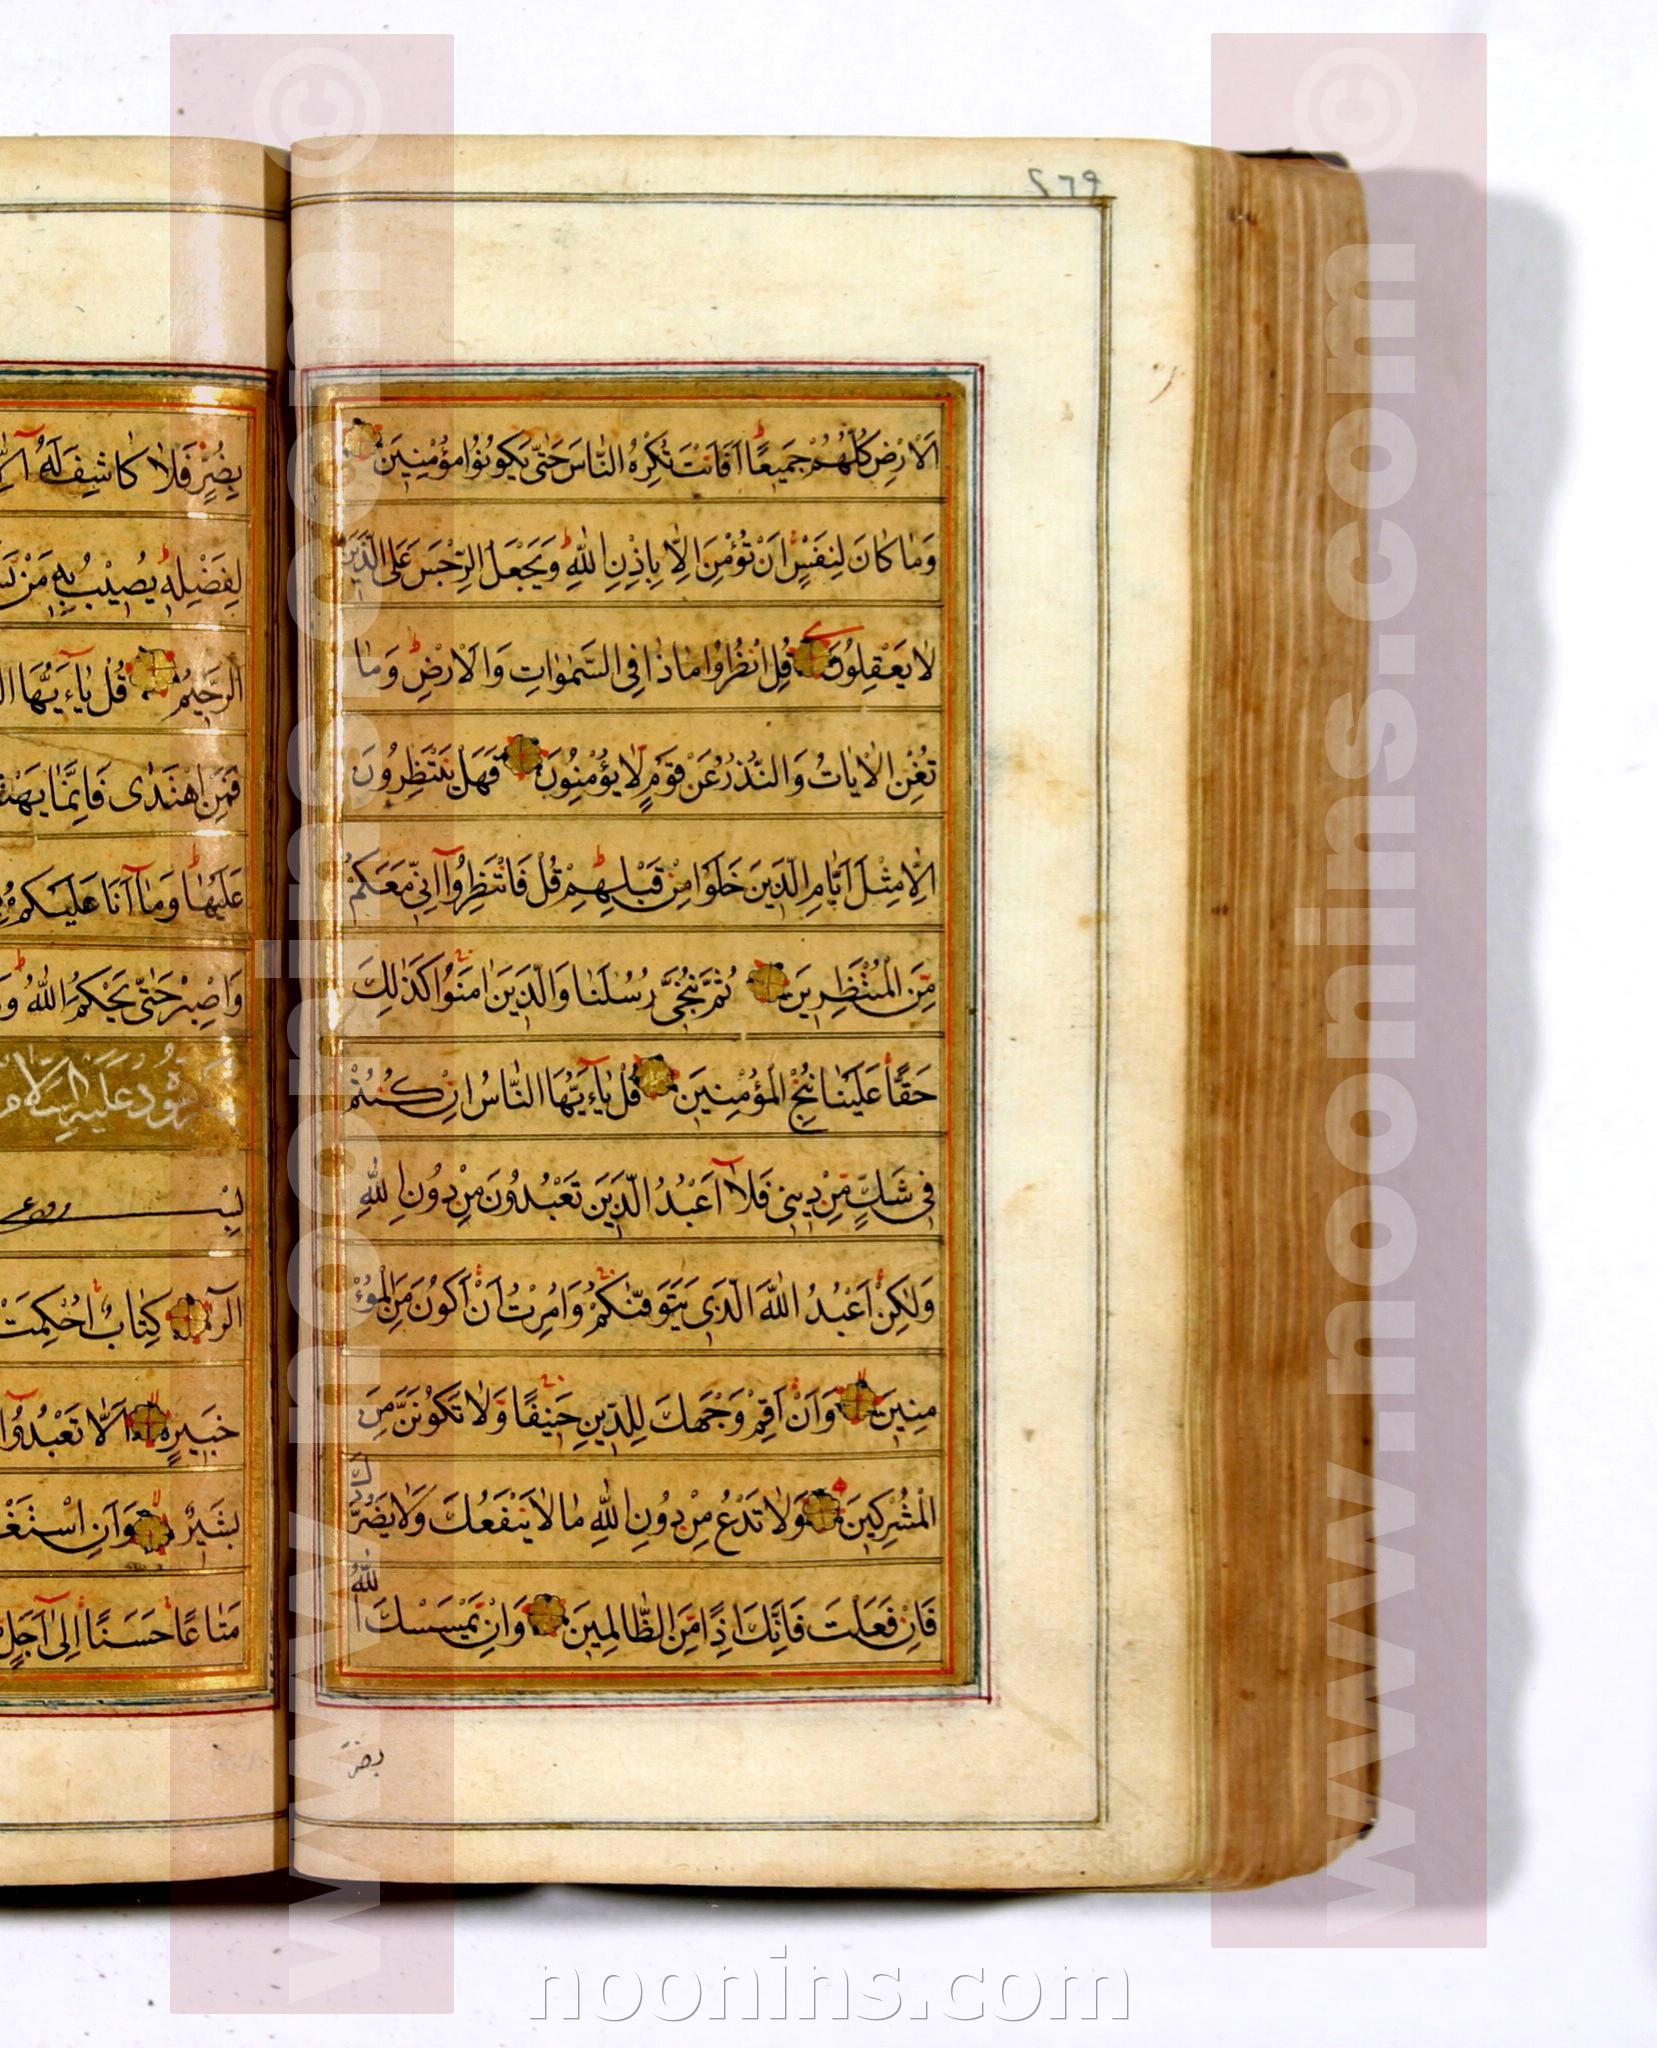 ٢٦٩
اَلْاَرْضِ كُلُّهُمْ جَمِيعًا اَفَاَنْتَ تُكْرِهُ النَّاسَ حَتّٰى يَكُونُوا مُؤْمِنِينَ
وَمَا كَانَ لِنَفْسٍ اَنْ تُؤْمِنَ اِلَّا بِاِذْنِ اللّٰهِ وَيَجْعَلُ الرِّجْسَ عَلَى الَّذِينَ
لَا يَعْقِلُونَ قُلِ انْظُرُوا مَاذَا فِى السَّمٰوَاتِ وَالْاَرْضِ وَمَا
تُغْنِى الْاٰيَاتُ وَالنُّذُرُ عَنْ قَوْمٍ لَا يُؤْمِنُونَ فَهَلْ يَنْتَظِرُونَ
اِلَّا مِثْلَ اَيَّامِ الَّذِينَ خَلَوْا مِنْ قَبْلِهِمْ قُلْ فَانْتَظِرُوا اِنِّى مَعَكُمْ
مِنَ الْمُنْتَظِرِينَ ثُمَّ نُنَجِّى رُسُلَنَا وَالَّذِينَ اٰمَنُوا كَذٰلِكَ
حَقًّا عَلَيْنَا نُنْجِ الْمُؤْمِنِينَ قُلْ يَاءَيُّهَا النَّاسُ اِنْ كُنْتُمْ
فِى شَكٍّ مِنْ دِينِى فَلَا اَعْبُدُ الَّذِينَ تَعْبُدُونَ مِنْ دُونِ اللّٰهِ
وَلٰكِنْ اَعْبُدُ اللّٰهَ الَّذِى يَتَوَفّٰىكُمْ وَاُمِرْتُ اَنْ اَكُونَ مِنَ الْمُؤْ
مِنِينَ وَاَنْ اَقِمْ وَجْهَكَ لِلدِّينِ حَنِيفًا وَلَا تَكُونَنَّ مِنَ
الْمُشْرِكِينَ وَلَا تَدْعُ مِنْ دُونِ اللّٰهِ مَا لَا يَنْفَعُكَ وَلَا يَضُرُّكَ
فَاِنْ فَعَلْتَ فَاِنَّكَ اِذًا مِنَ الظَّالِمِينَ وَاِنْ يَمْسَسْكَ اللّٰهُ
بضر
بِضُرٍّ فَلَا كَاشِفَ لَهُ
لِفَضْلِهِ يُصِيبُ بِهِ مَنْ
الرَّحِيمُ قُلْ يَاءَيُّهَا
فَمَنِ اهْتَدٰى فَاِنَّمَا
عَلَيْهَا وَمَا اَنَا عَلَيْكُمْ
وَاصْبِرْ حَتّٰى يَحْكُمَ اللّٰهُ
هُودْ عَلَيْهِ السَّلَام
الٓرٰ كِتَابٌ اُحْكِمَتْ
خَبِيرٍ اَلَّا تَعْبُدُوا
بَشِيرٌ وَاَنِ
مَتَاعًا حَسَنًا اِلٰى اَجَلٍ
www.noonins.com ©
www.noonins.com ©
noonins.com